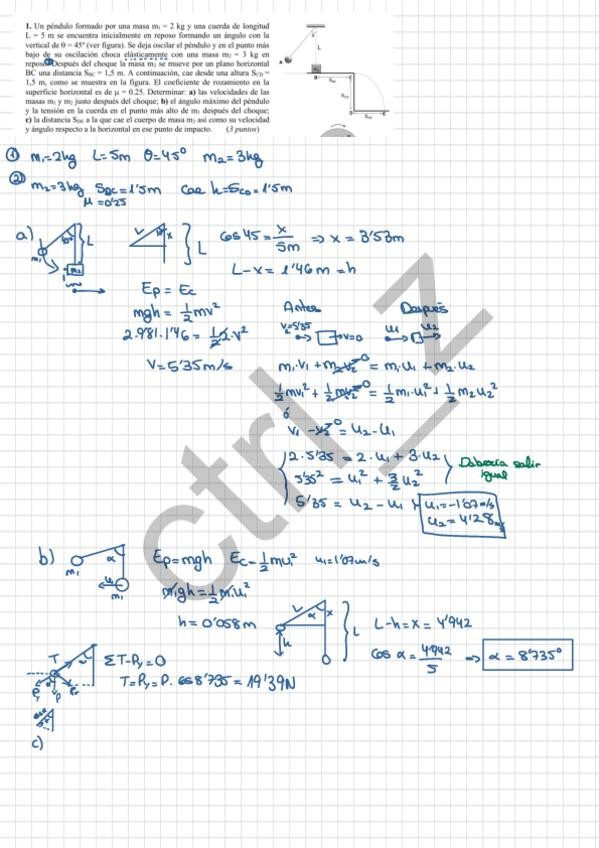 1. Un péndulo formado por una masa m₁ = 2 kg y una cuerda de longitud
L = 5 m se encuentra inicialmente en reposo formando un ángulo con la
vertical de θ = 45° (ver figura). Se deja oscilar el péndulo y en el punto más
bajo de su oscilación choca elásticamente con una masa m₂ = 3 kg en
reposo. Después del choque la masa m₂ se mueve por un plano horizontal
BC una distancia S_BC = 1,5 m. A continuación, cae desde una altura S_CD =
1,5 m, como se muestra en la figura. El coeficiente de rozamiento en la
superficie horizontal es de μ = 0.25. Determinar: a) las velocidades de las
masas m₁ y m₂ justo después del choque; b) el ángulo máximo del péndulo
y la tensión en la cuerda en el punto más alto de m₁ después del choque;
c) la distancia S_DE a la que cae el cuerpo de masa m₂ así como su velocidad
y ángulo respecto a la horizontal en ese punto de impacto. (3 puntos)
L
A
B
① m₁=2kg L=5m θ=45° m₂=3kg
② m₂=3kg S_BC=1'5m cae h=S_CD=1'5m
μ=0'25
a) L m₁ m₂
L x L
cos 45 = x/5m ⇒ x = 3'53m
L-x = 1'46m = h
Ep = Ec
mgh = ½mv²
2·9'81·1'46 = ½·2·v²
V=5'35m/s
Antes Después
V=5'35 V=0 u₁ u₂
m₁·v₁ + m₂v₂⁰ = m₁·u₁ + m₂·u₂
½mv₁² + ½mv₂²⁰ = ½m₁·u₁² + ½m₂u₂²
ó
v₁ - v₂⁰ = u₂ - u₁
2·5'35 = 2·u₁ + 3·u₂
5'35² = u₁² + 3/2 u₂²
Debería salir
igual
5'35 = u₂ - u₁
u₁=-1'07m/s
u₂=4'28m/s
b) m₁ α m₁
Ep=mgh Ec=½mu₁² u₁=1'07m/s
mgh=½m·u₁²
h=0'058m
L α x h L
L-h=x=4'942
cos α = 4'942/5 ⇒ α = 8'735°
T
ΣT-Py=0
T=Py=P·cos8'735=19'39N
Py P Px
c)
ctrl_z